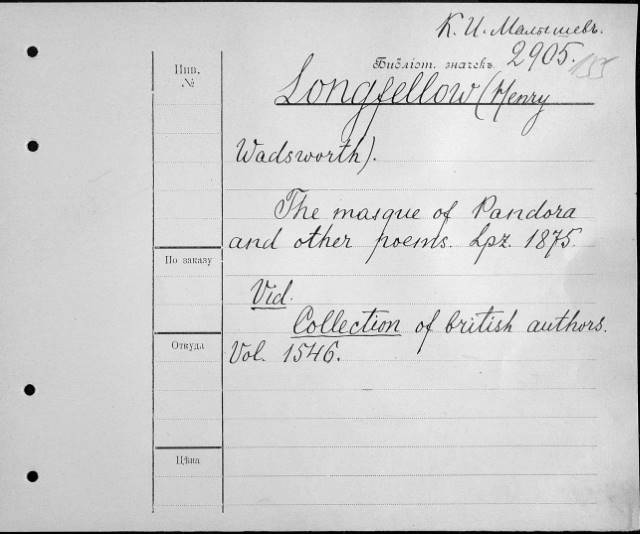 К. И. Малышевъ.
Инв.
№
Библіот. значекъ 2905. 155
Longfellow (Henry
Wadsworth).
The masque of Pandora
and other poems. Lpz. 1875.
По заказу
Vid.
Collection of british authors.
Откуда
Vol. 1546.
Цѣна